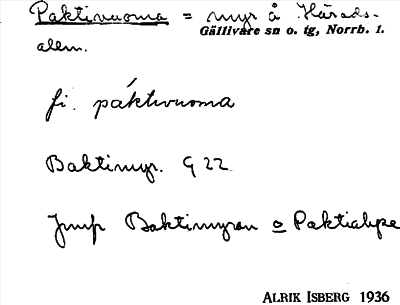 Paktivuoma = myr å Härads-
Gällivare sn o. tg, Norrb. l.
alem.
fi. páktivuoma
Baktimyr. G 22.
Jmfr Baktimyran o Paktialipe
ALRIK ISBERG 1936